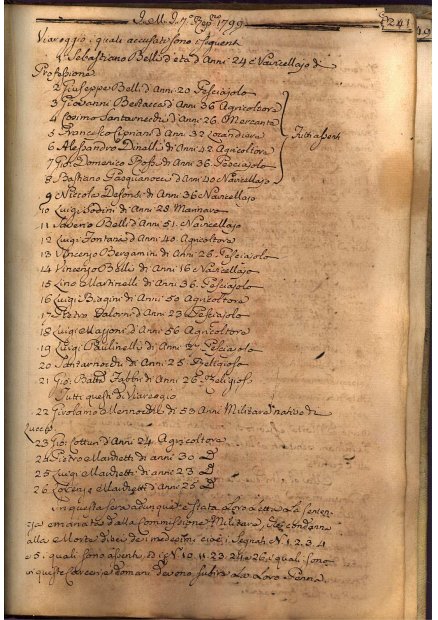 J. M. J. 7.bre 1799
241
Viareggio, i quali accusati sono i seguenti
1 Sebastiano Belli d'età d'Anni 24 Navicellajo di
Professione
2 Giuseppe Belli d'Anni 20 Pesciajolo
3 Giovanni Anni 36 Agricoltore
4 Cosimo Santarnecchi d'Anni 26 Mercante
5 Francesco Cipriani d'Anni 32 Locandiere
6 Alessandro Dinelli d'Anni 42 Agricoltore
7 Gio: Domenico d'Anni 36 Pesciajolo
8 Bastiano Pasquanucci d'Anni 40 Navicellajo
Tutti assenti
9 Niccola di Anni 36 Navicellajo
10 Luigi di Anni 28 Marinaro
11 Saverio Belli d'Anni 51 Navicellajo
12 Luigi Fontana d'Anni 40 Agricoltore
13 Vincenzo Bergamini d'Anni 26 Pesciajolo
14 Vincenzo Belli di Anni 16 Navicellajo
15 Lino Martinelli d'Anni 36 Pesciajolo
16 Luigi di Anni 50 Agricoltore
17 Pietro d'Anni 23 Pesciajolo
18 Luigi d'Anni 56 Agricoltore
19 Luigi Paulinelli di Anni Pesciajolo
20 Santarnecchi d'Anni 25 Religioso
21 Gio: Batta Fabbri di Anni 26 Religioso
Tutti questi di Viareggio
22 Girolamo di 53 Anni Militare nativo di
Lucca
23 Gio: d'Anni 24 Agricoltore
24 Pietro Marchetti di anni 30
25 Luigi Marchetti di anni 23
26 Lorenzo Marchetti d'Anni 25
In questa sera adunque è stata a Loro letta la Senten-
za emanata dalla Commissione Militare, che condanna
alla Morte dieci dei medesimi cioè i Segnati N. 1. 2. 3. 4
e 5. quali sono assenti, ed i N. 10. 11. 23. 24 e 26, i quali sono
in queste Carceri, e domani devono subire la Loro Pena.